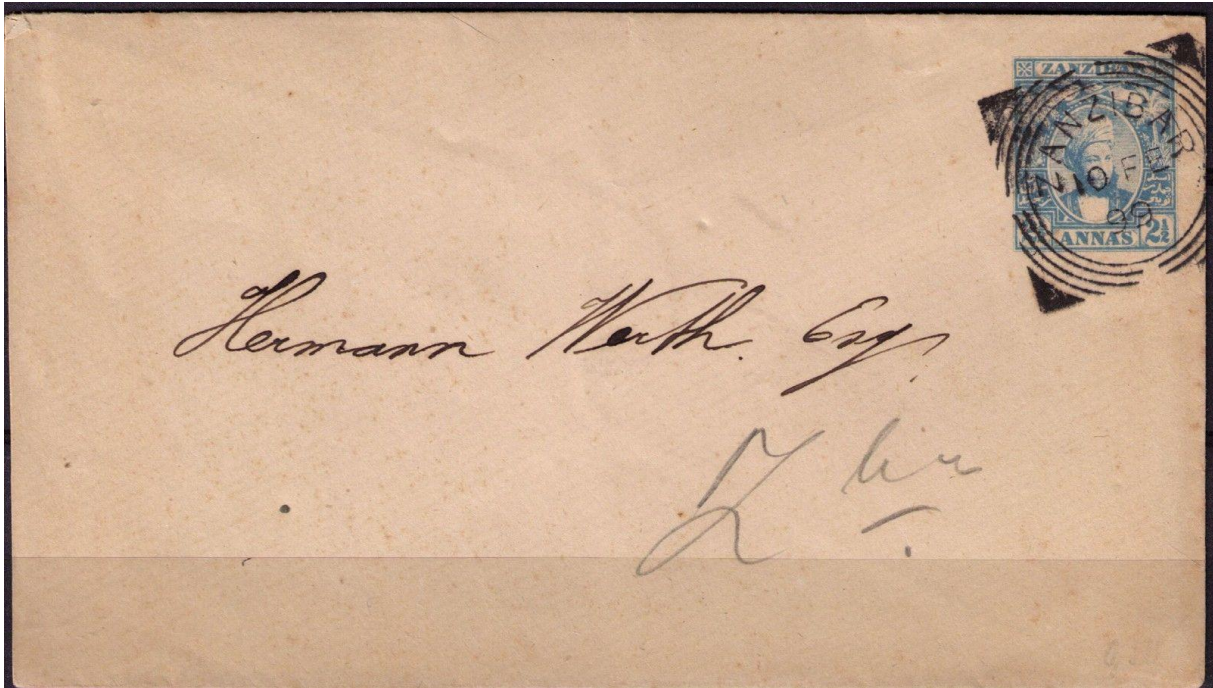 ZANZIBAR
ZANZIBAR
10 FE
99
ANNAS 2½
Hermann Werth. Esq.
Zbr